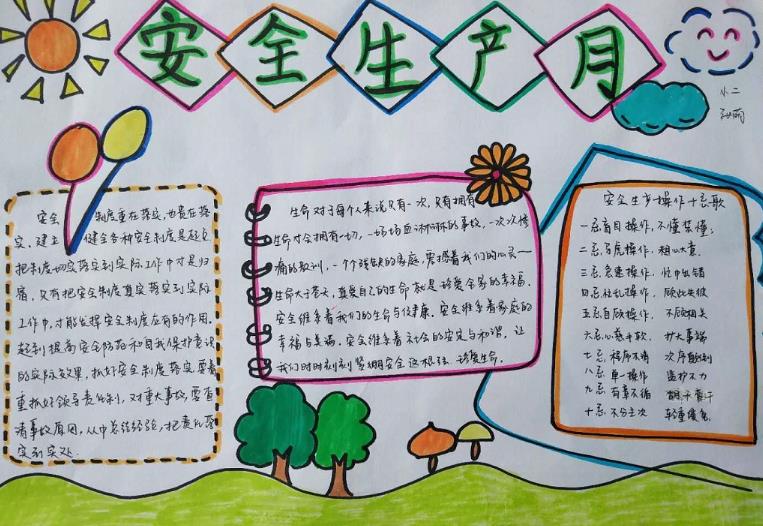 安全生产月
小二
安全 制度重在落实,也贵在落
实,建立 健全各种安全制度是起点
把制度切实落实到实际工作中才是归
宿,只有把安全制度真实落实到实际
工作中,才能发挥安全制度应有的作用。
起到提高安全防范和自我保护意识
的实际效果,抓好安全制度落实要着
重抓好领导责任制,对重大事故要查
清事故原因,从中总结经验,把责任落
实到实处
生命对于每个人来说只有一次,只有拥有
生命才会拥有一切,一场场血淋淋的事故,一次次惨
痛的教训,一个个残缺的家庭,震撼着我们的心灵一
生命大于苍天,真爱自己的生命就是珍爱全家的幸福,
安全维系着我们的生命与健康,安全维系着家庭的
幸福与美满,安全维系着社会的安定与和谐,让
我们时时刻刻紧绷安全这根弦,珍爱生命。
安全生产操作十忌歌
一忌盲目操作,不懂装懂;
二忌马虎操作,粗心大意,
三忌急速操作,忙中出错
四忌忙乱操作,顾此失彼
五忌自顾操作,不顾相关
六忌心慈手软,扩大事端
七忌程序不清 次序颠倒
八忌单一操作 监护不力
九忌有章不循
十忌不分主次 轻重缓急